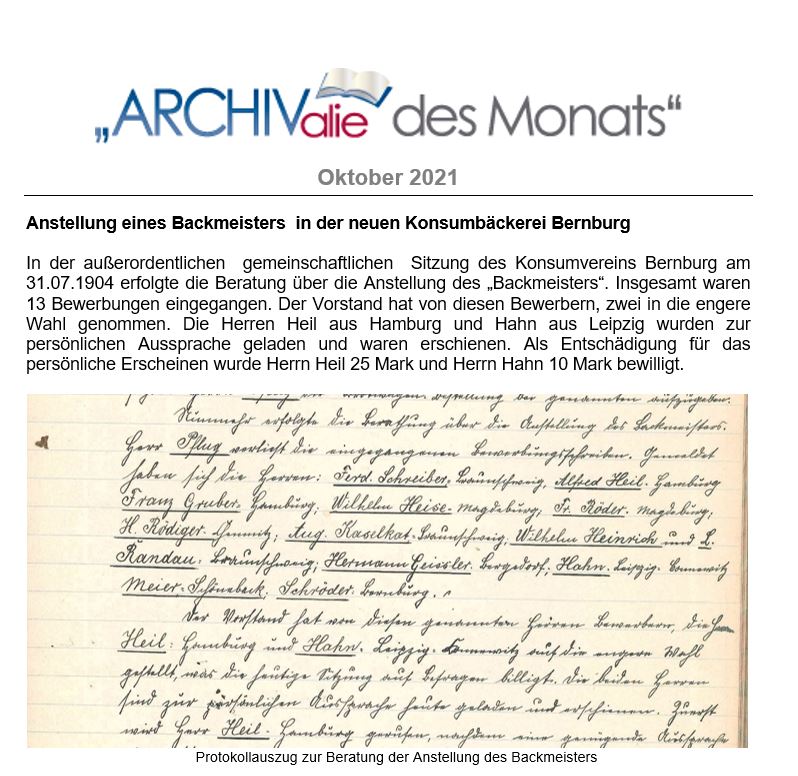 „ARCHIValie des Monats“
Oktober 2021
Anstellung eines Backmeisters in der neuen Konsumbäckerei Bernburg
In der außerordentlichen gemeinschaftlichen Sitzung des Konsumvereins Bernburg am
31.07.1904 erfolgte die Beratung über die Anstellung des „Backmeisters“. Insgesamt waren
13 Bewerbungen eingegangen. Der Vorstand hat von diesen Bewerbern, zwei in die engere
Wahl genommen. Die Herren Heil aus Hamburg und Hahn aus Leipzig wurden zur
persönlichen Aussprache geladen und waren erschienen. Als Entschädigung für das
persönliche Erscheinen wurde Herrn Heil 25 Mark und Herrn Hahn 10 Mark bewilligt.
der genannten aufzugeben.
Nunmehr erfolgte die Berathung über die Anstellung des Backmeisters.
Herr Pflug verliest die eingegangenen Bewerbungsschreiben. Gemeldet
haben sich die Herren: Ferd. Schreiber. Braunschweig, Alfred Heil. Hamburg
Franz Gruber. Hamburg; Wilhelm Heise. Magdeburg; Fr. Röder. Magdeburg;
H. Rödiger. Chemnitz; Aug. Kaselkat. Braunschweig; Wilhelm Heinrich und L.
Randau. Braunschweig; Hermann Geissler. Bergedorf; Hahn. Leipzig. Connewitz
Meier. Schönebeck; Schröder. Bernburg.
Der Vorstand hat von diesen genannten Herren Bewerbern, die Herren
Heil. Hamburg und Hahn. Leipzig. Connewitz auf die engere Wahl
gestellt, was die heutige Sitzung auf Befragen billigt. Die beiden Herren
sind zur persönlichen Aussprache heute geladen und erschienen. Zuerst
wird Herr Heil. Hamburg gerufen, nachdem eine genügende Aussprache
Protokollauszug zur Beratung der Anstellung des Backmeisters